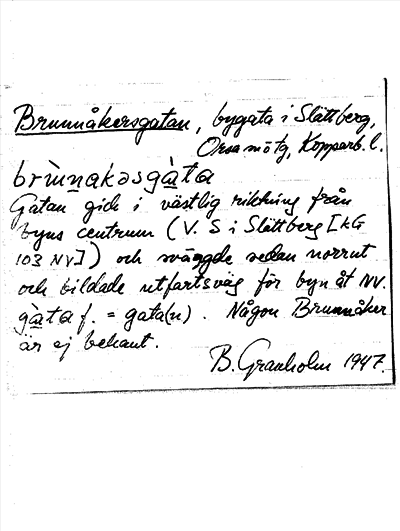 Brunnåkersgatan, bygata i Slättberg,
Orsa sn o tg, Kopparb. l.
brìn̲akəsgàta
Gatan gick i västlig riktning från
byns centrum (V. S i Slättberg [kG
103 NV]) och svängde sedan norrut
och bildade utfartsväg för byn åt NV.
gàta f. = gata(n). Någon Brunnåker
är ej bekant.
B. Granholm 1947.